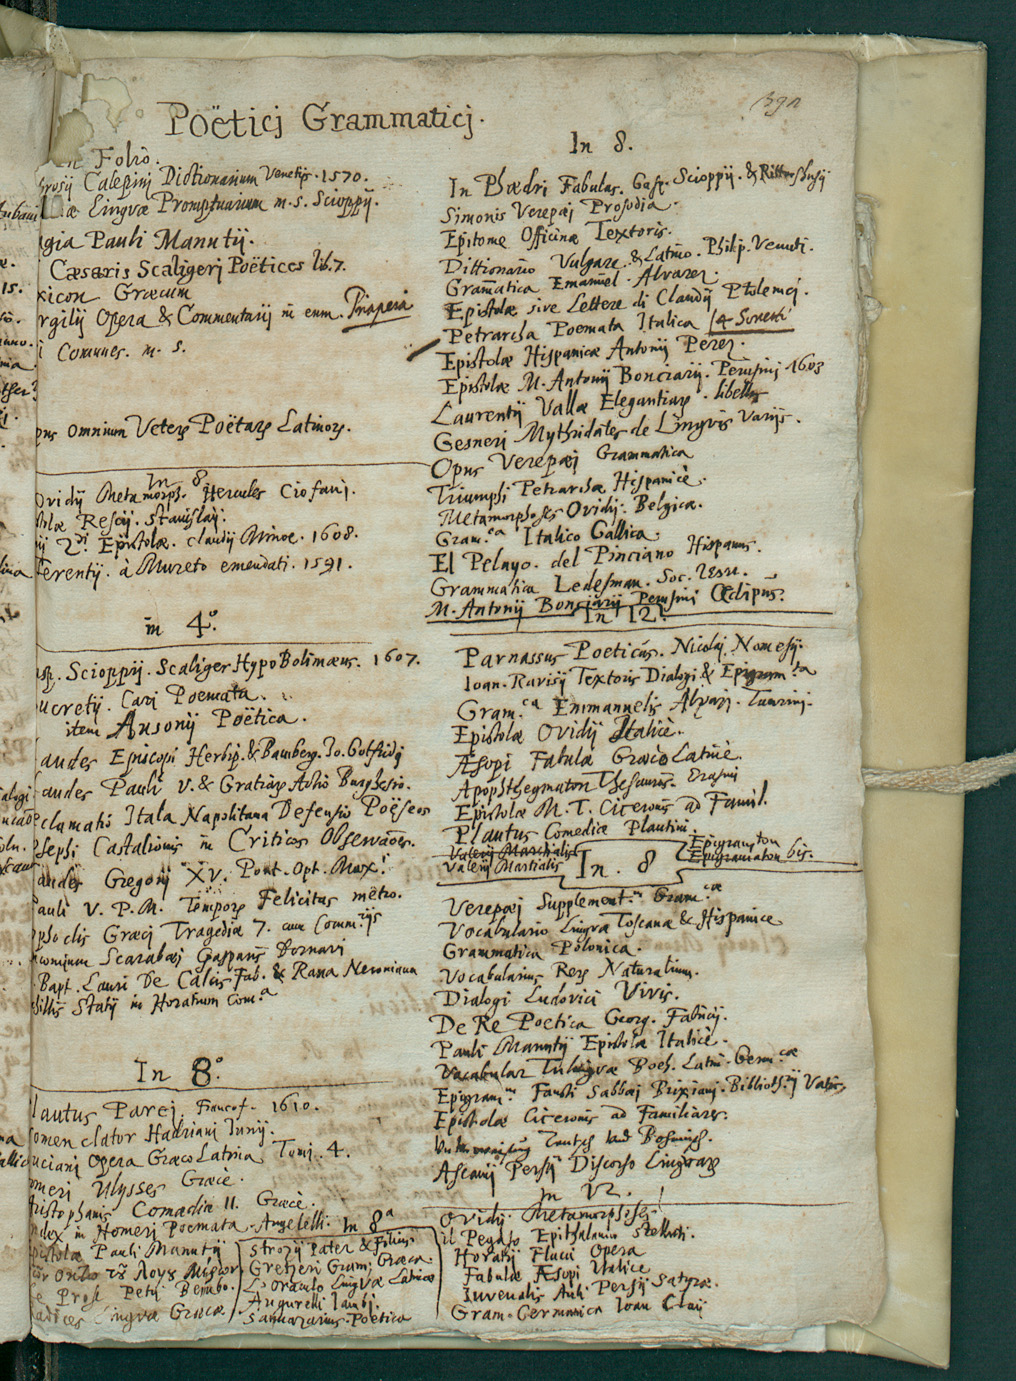 Poëticj Grammaticj.
In Folio.
Calepinj Dictionarium Venetijs. 1570.
Linguæ Promptuarium m. s. Scioppij.
gia Pauli Manutij.
Cæsaris Scaligerj Poëtices lib. 7.
xicon Græcum
rgilij Opera & Commentarij in eum. Priapeia
Comnes. m. s.
pus omnium Veterũ Poëtarũ Latinorũ.
In 8
Ovidij Metamorph. Hercules Ciofanj.
olæ Rescij. Stanislaj.
Epistolæ. Claudij Minoe. 1608.
Terentij. à Mureto emendati. 1591.
in 4º.
Scioppij. Scaliger HypoBolimæus. 1607.
ucretij. Cari Poemata.
item Ausonij Poëtica.
audes Episcopi Herbip. & Bamberg. Jo. Gotfridj
audes Pauli V. & Gratiarũ Actio Burghesio.
eclamatio Itala Napolitana Defensio Poëseos
osephi Castalionis in Criticos Observatões.
audes Gregorij XV. Pont. Opt. Max.
Pauli V. P. M. Temporũ Felicitas metro.
ophoclis Græcj Tragediæ 7. cum Comm.rijs
ncomium Scarabæj Gasparis Dornavi
Bapt. Lauri De Calcis Fab. & Rana Neroniana
hillis Statij in Horatium Com.a
In 8º.
lautus Parej Francof. 1610.
omenclator Hadrianj Junij.
uciani Opera GræcoLatina Tomj. 4.
omeri Ulysses Græcè.
ristophanis Comædiæ 11. Græcè.
ndex in Homerj Poemata. Angelelli.
pistolæ Pauli Manutij
e Prose Petrj Bembo.
adices Linguæ Græcæ
In 8a
Strozij Pater & Filius
Gretseri Gram. Græca.
L'oraculo Linguæ Latinæ
Augurelli Iambj.
Sannazarius. Poëtica
In 8.
In Phædri Fabulas. Gasp. Scioppij. & Rittershusij
Simonis Verepæj Prosodia.
Epitome Officinæ Textoris.
Dittionario Vulgare & Latino. Philip. Venuti.
Gramatica Emanuel. Alvarez.
Epistolæ sive Lettere di Claudij Ptolemej.
Petrarcha Poemata Italica 4 Sonesti
Epistolæ Hispanicæ Antonij Perez.
Epistolæ M. Antonij Bonciarij. Perusinj 1603
Laurentij Vallæ Elegantiarũ. libellus
Gesneri Mythridates de Linguis Varijs.
Opus Verepæj Grammatica
Triumphi Petrarchæ Hispanicè.
Metamorphoses Ovidij. Belgica.
Gram.ca Italico Gallica.
El Pelayo. del Pinciano Hispanus.
Grammatica Ledesman. Soc. Iesu.
M. Antonij Bonciarij Perusinj Œdipus.
In 12.
Parnassus Poeticus. Nicolaj Nomesij.
Ioan. Ravisij Textoris Dialogi & Epigram.ta
Gram.ca Emmanuelis Alvarj. Taurinj.
Epistolæ Ovidij Italicè.
Æsopi Fabulæ GræcoLatinè.
Apophthegmaton Thesaurus. Erasmj
Epistolæ M. T. Ciceronis ad Famil.
Plautus Comediæ Plautini.
Valerij Martialis
Valerij Martialis Epigramaton bis.
In. 8
Verepæj Supplement.m Gram.cæ
Vocabulario Lingua Toscana & Hispanice
Grammatica Polonica.
Vocabularius Rerũ Naturalium.
Dialogi Ludovici Vivis.
De Re Poetica Georg. Fabricij.
Pauli Manutij Epistolæ Italicè.
Vocabular Trilinguæ Boeh. Latin. Germ.cæ
Epigram.m Fausti Sabbæj Brixianj. Biblioth.rij Vatic.
Epistolæ Ciceronis ad Familiares.
Ascanij Persij Discorso Linguarũ
In 12.
Ovidij Metamorphosis.
il Pegaso Epithalamio
Horatij Flacci Opera
Fabulæ Æsopi Italice
Iuvenalis Auli Persij Satyræ.
Gram. Germanica Ioan Claij